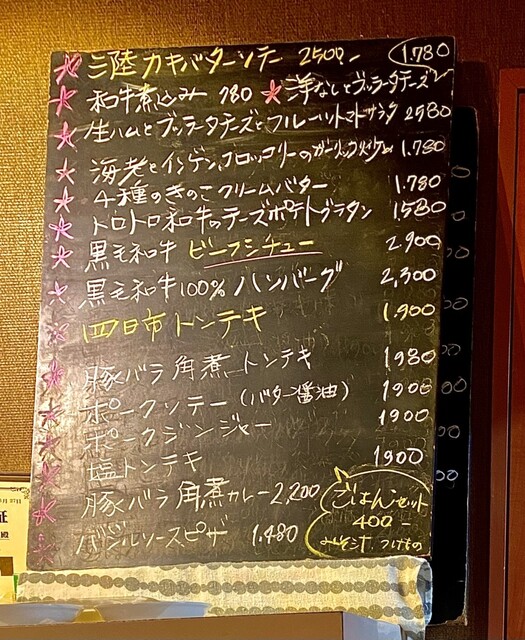 三陸カキバターソテー 2500.-
1.780
和牛煮込み 780 洋なしとブッラータチーズ
生ハムとブッラータチーズとフルーツトマトサラダ 2580
海老とインゲン、ブロッコリーのガーリック炒め 1.780
4種のきのこクリームバター 1.780
トロトロ和牛のチーズポテトグラタン 1580
黒毛和牛 ビーフシチュー 2.900
黒毛和牛100%ハンバーグ 2,300
四日市トンテキ 1.900
豚バラ角煮トンテキ 1980
ポークソテー(バター醤油) 1900
ポークジンジャー 1900
塩トンテキ 1900
豚バラ角煮カレー 2,200
バジルソースピザ 1.480
ごはんセット
400-
みそ汁、つけもの
証
殿